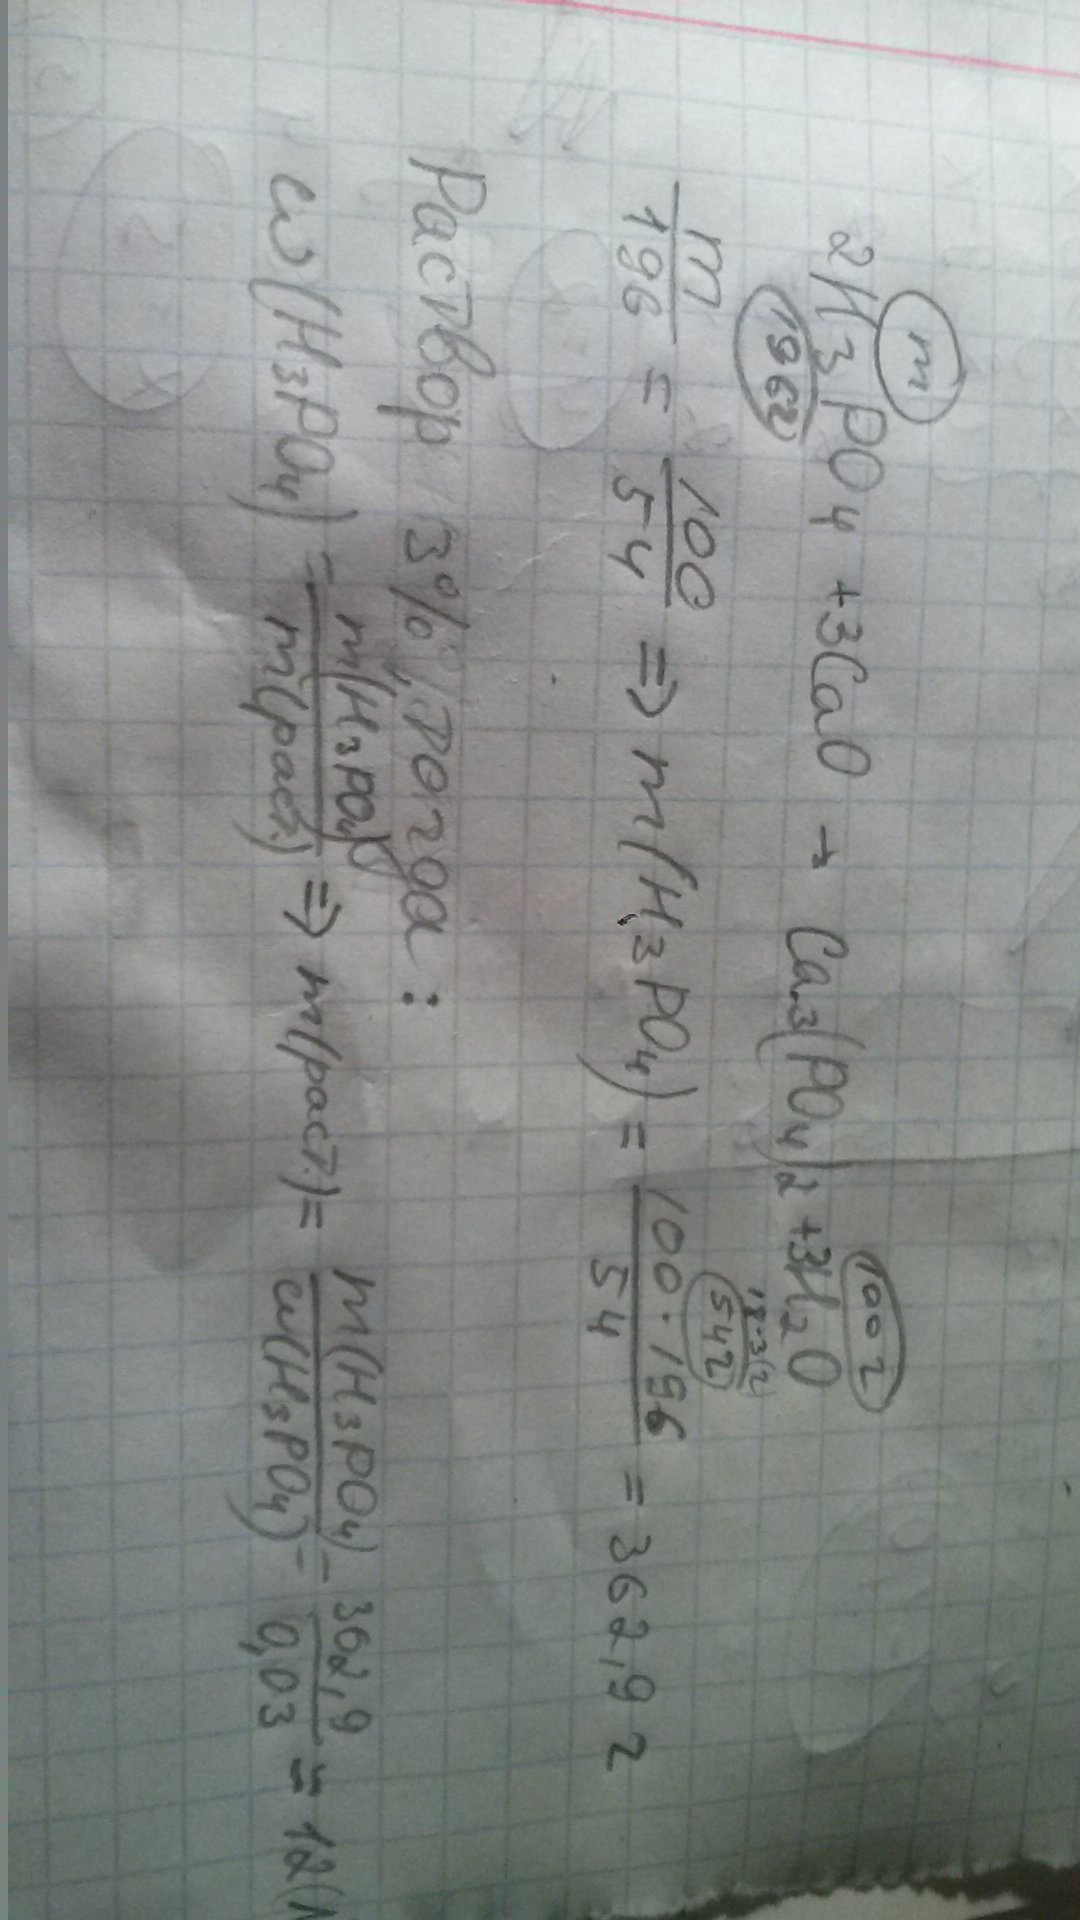 m 100г
2H₃PO₄ + 3CaO → Ca₃(PO₄)₂ + 3H₂O
196г 18·3(г)
54г
m/196 = 100/54 => m(H₃PO₄) = 100·196/54 = 362,9г
Раствор 3%, тогда:
ω(H₃PO₄) = m(H₃PO₄)/m(раст.) => m(раст.) = m(H₃PO₄)/ω(H₃PO₄) = 362,9/0,03 ≈ 12(